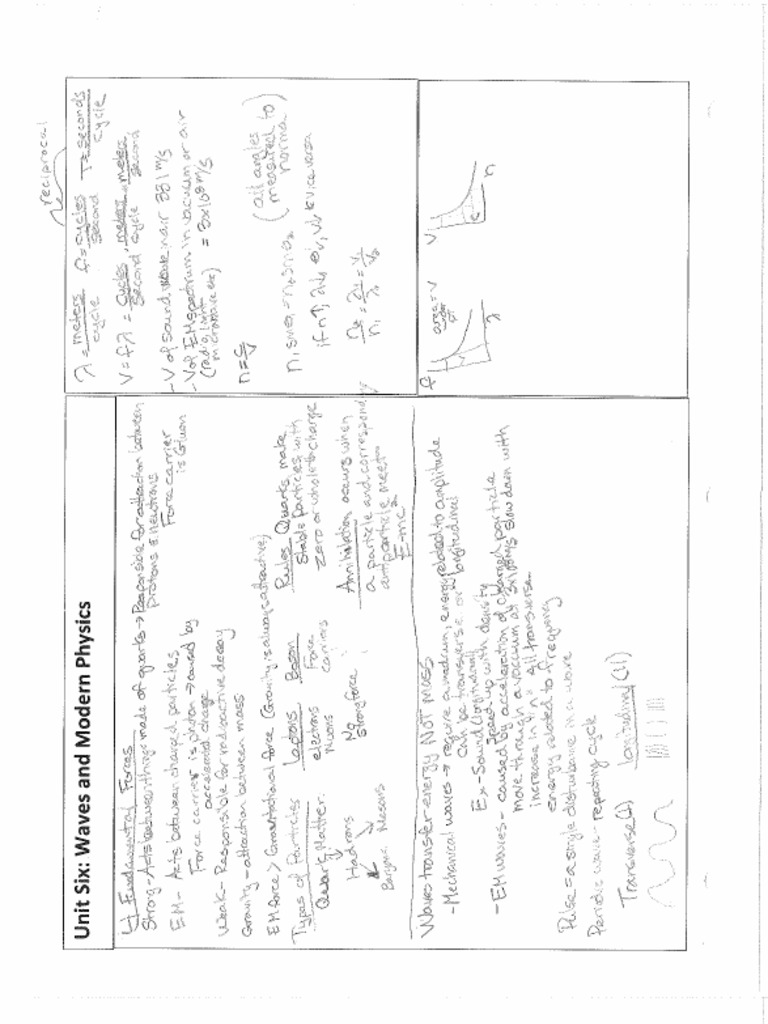 Unit Six: Waves and Modern Physics
4 Fundamental Forces
Strong - Acts between things made of quarks → Responsible for attraction between
protons & neutrons
Force carrier
is Gluon
EM - Acts between charged particles
Force carrier is photon → caused by
accelerated charge
Weak - Responsible for radioactive decay
Gravity - attraction between mass
EM force > Gravitational force (Gravity is always attractive)
Types of Particles
Quark Matter
Hadrons
Baryons Mesons
Leptons
electrons
Muons
No
strong force
Boson
Force
carriers
Rules Quarks make
stable particles with
zero or whole charge
Annihilation occurs when
a particle and corresponding
antiparticle meet
E=mc²
Waves transfer energy NOT mass
- Mechanical waves → require a medium, energy related to amplitude
can be transverse or longitudinal
Ex - Sound (longitudinal)
speed up with density
- EM waves - caused by acceleration of charged particle
move through a vaccum at 3x10⁸m/s slow down with
increase in "n" All transverse
energy related to frequency
Pulse = a single disturbance in a wave
Periodic wave - repeating cycle
Transverse
Longitudinal (11)
reciprocal
λ = meters/cycle f = cycles/second T = seconds/cycle
V = fλ = cycles/second · meters/cycle = meters/second
- V of sound wave in air 331 m/s
- V of EM spectrum in vacuum or air
(radio, light, microwave etc) = 3x10⁸ m/s
n = c/v
n₁sinθ₁ = n₂sinθ₂ (all angles
measured to
normal)
if n↑, λ↓ θ↓, v↓ & vice versa
n₂/n₁ = λ₁/λ₂ = v₁/v₂
f
area = v
under
λ
v
c
n